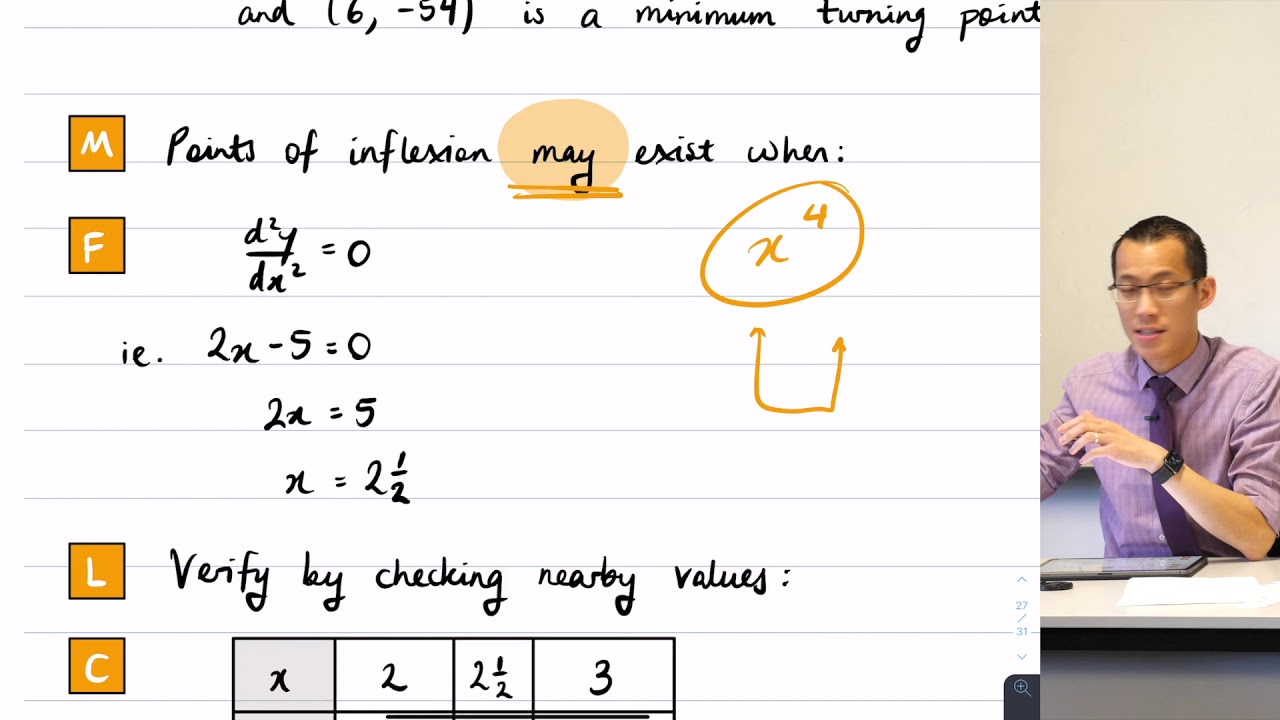 and (6, -54) is a minimum turning point
M Points of inflexion may exist when:
F d²y/dx² = 0
x⁴
ie. 2x - 5 = 0
2x = 5
x = 2 1/2
L Verify by checking nearby values:
27
/
31
C x 2 2 1/2 3